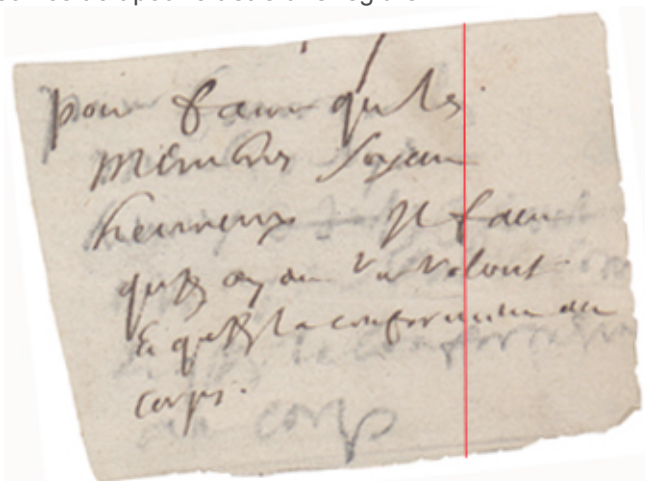 pour faire que les
membres soyent
heureux Il faut
qu'ils ayent une volonté
Et qu'ils la conforment au
corps.